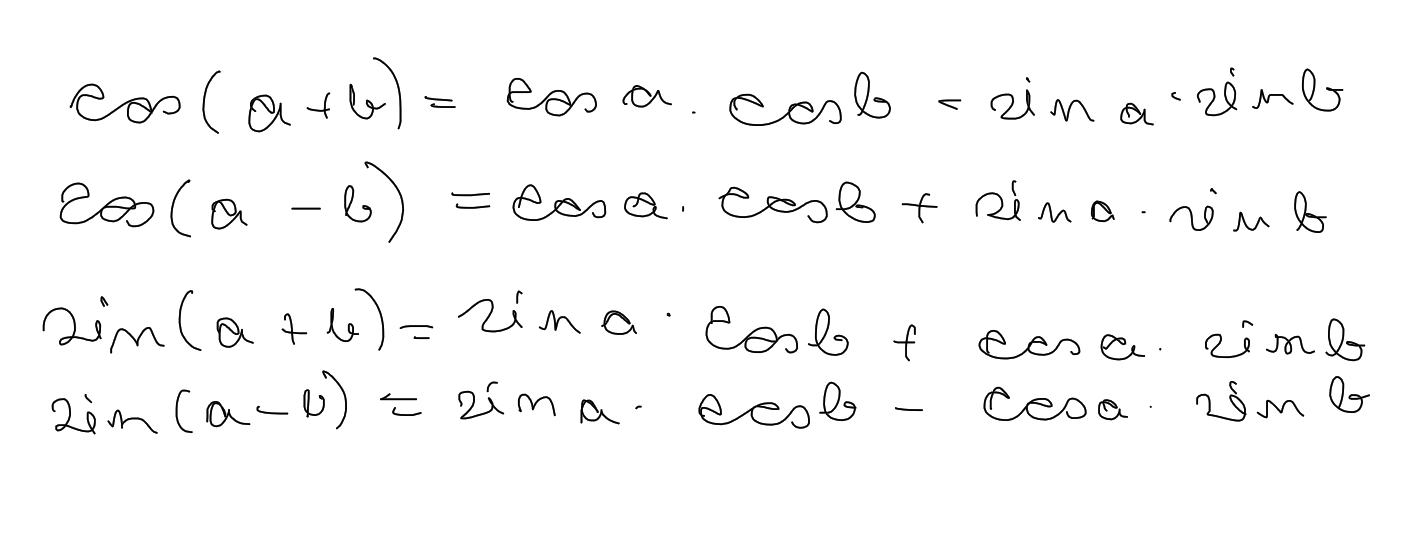 cos(a+b) = cos a · cos b - sin a · sin b
cos(a - b) = cos a · cos b + sin a · sin b
sin(a + b) = sin a · cos b + cos a · sin b
sin(a - b) = sin a · cos b - cos a · sin b